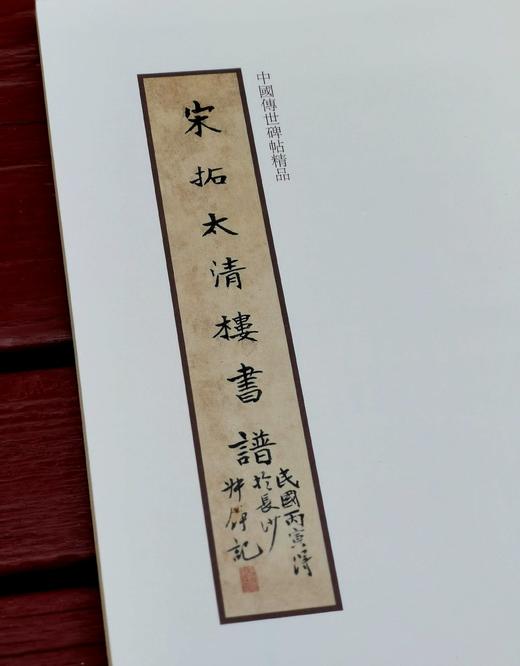 中國傳世碑帖精品
宋拓太清樓書譜
民國丙寅得
於長沙
記